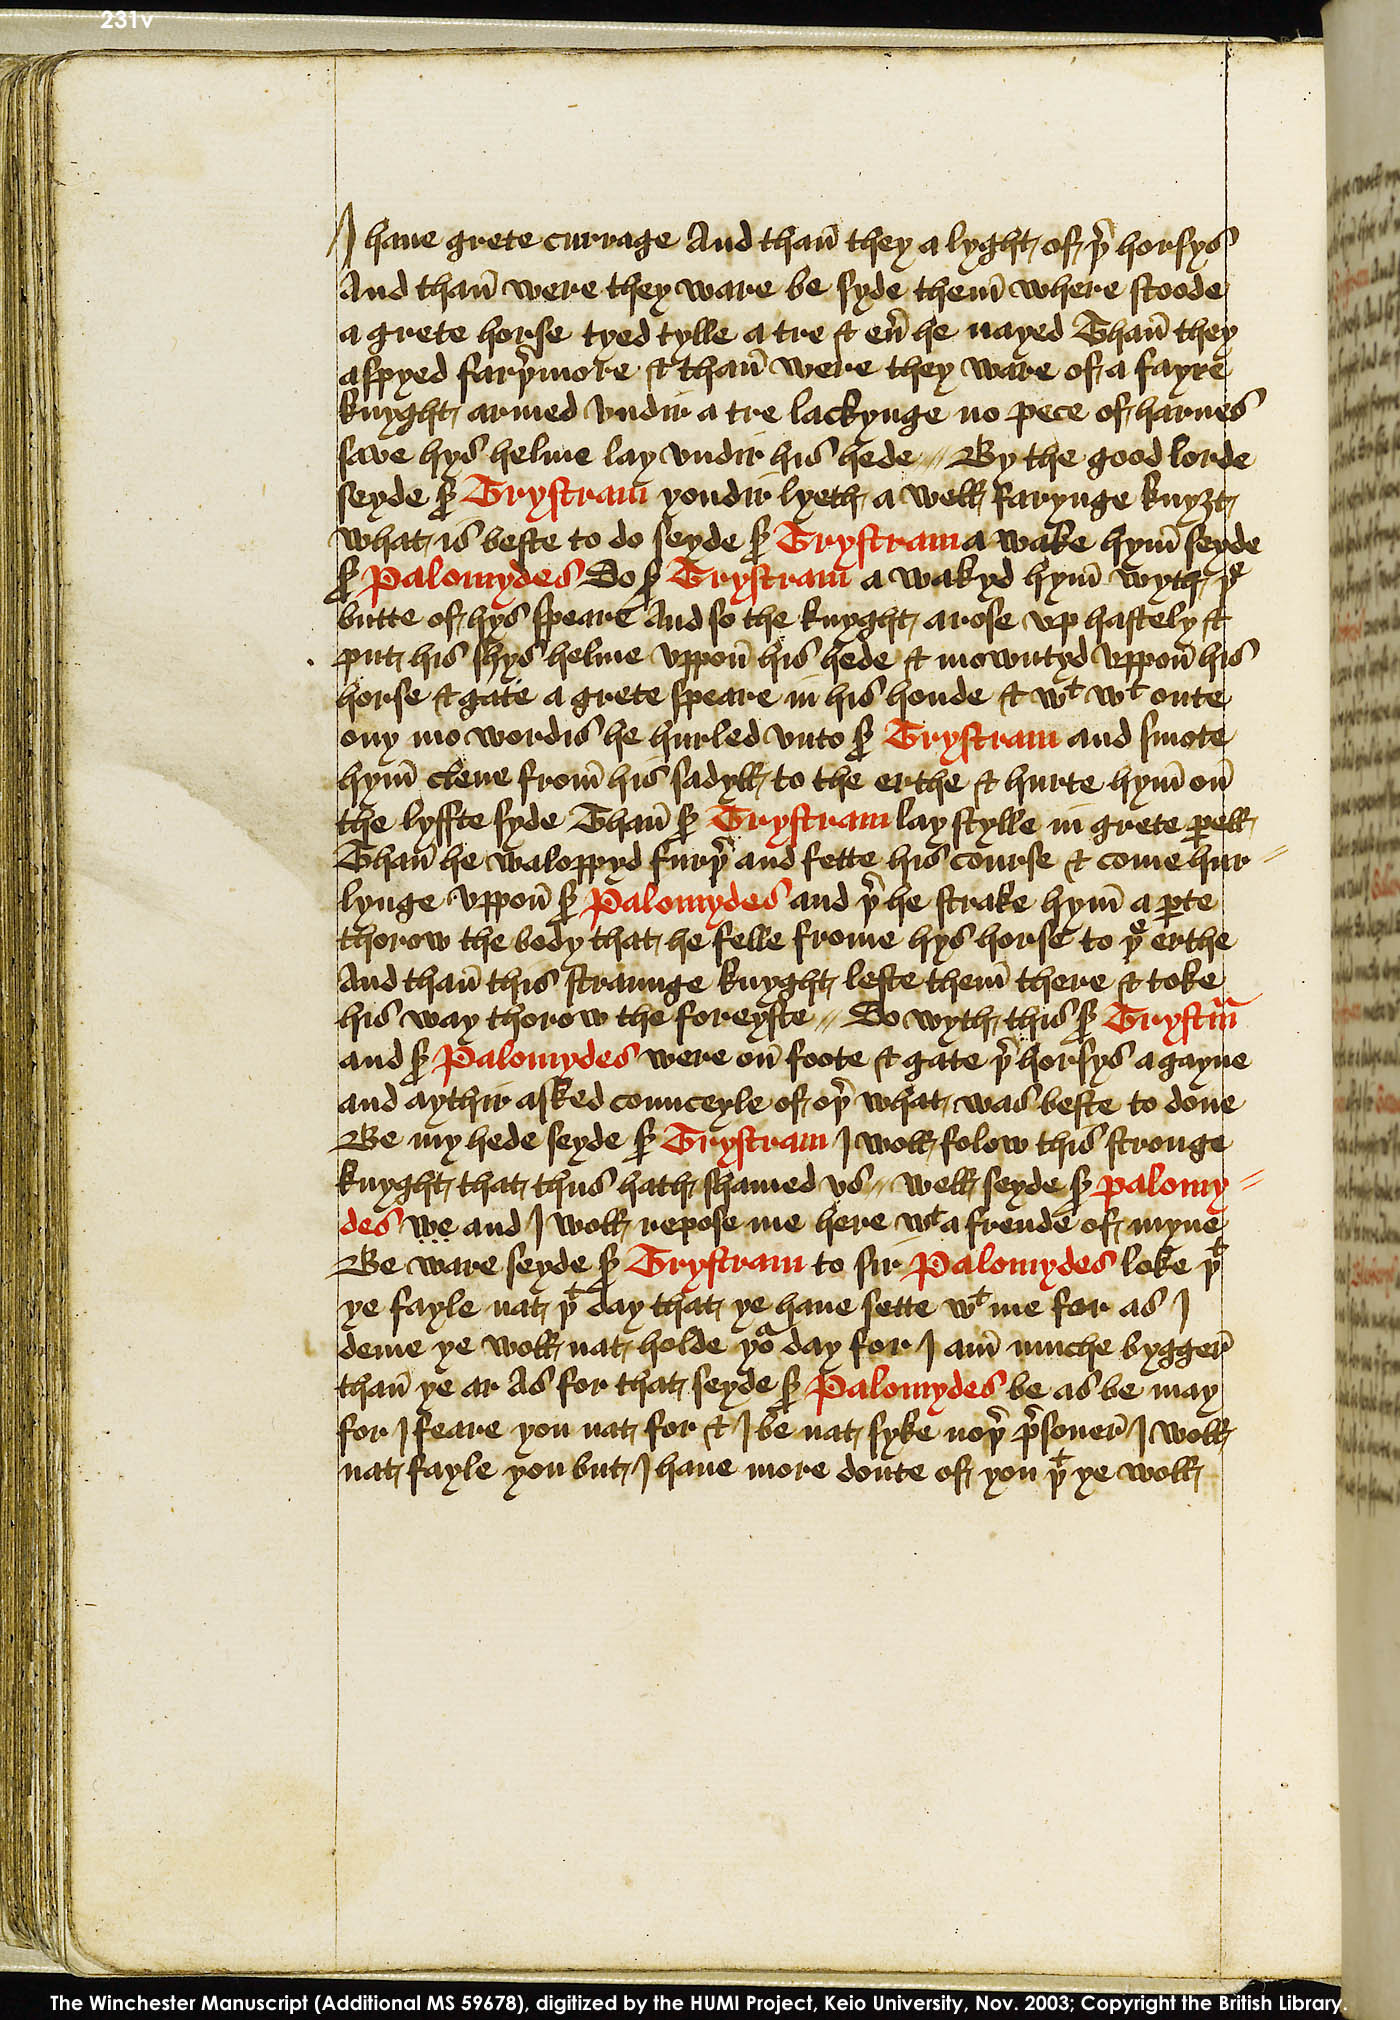 231v
I haue grete currage And thañ they a lyght of þr horsys
And thañ were they ware be syde them̄ where stoode
a grete horse tyed tylle a tre & eũ he nayed Thañ they
aspyed farþrmore & thañ were they ware of a fayre
knyght armed vndir a tre lackynge no pece of harnes
save hys helme lay vndir his hede // By the good lorde
seyde sr Trystram yondir lyeth a well farynge knyzt
What is beste to do seyde sr Trystram a wake hym̄ seyde
sr Palomydes So sr Trystram a wakyd hym̄ wyth þe
butte of hys speare And so the knyght a rose vp hastely &
put his hys helme vppoñ his hede & mowntyd vppoñ his
horse & gate a grete speare in his honde & wt wt oute
ony mo wordis he hurled vnto sr Trystram and smote
hym̄ clene from̄ his sadyll to the erthe & hurte hym̄ oñ
the lyffte syde Thañ sr Trystram lay stylle in grete ꝑell
Thañ he waloppyd furþr and fette his course & come hur=
lynge vppoñ sr Palomydes and þr he strake hym̄ a ꝑte
thorow the body that he felle frome hys horse to þe erthe
And thañ this straunge knyght lefte them̄ there & toke
his way thorow the foreyste // So wyth this sr Trystrm̄
and sr Palomydes were oñ foote & gate þr horsys a gayne
and aythir asked counceyle of oþr what was beste to done
Be my hede seyde sr Trystram I woll folow this stronge
knyght that thus hath shamed vs // well seyde sr palomy=
des we and I woll repose me here wt a frende of myne
Be ware seyde sr Trystram to sir Palomydes loke þt
ye fayle nat þt day that ye haue sette wt me for as I
deme ye woll nat holde yor day for I am̄ muche bygger
thañ ye ar As for that seyde sr Palomydes be as be may
for I feare you nat for & I be nat syke noþr prsoner I woll
nat fayle you but I haue more doute of you þt ye woll
The Winchester Manuscript (Additional MS 59678), digitized by the HUMI Project, Keio University, Nov. 2003; Copyright the British Library.